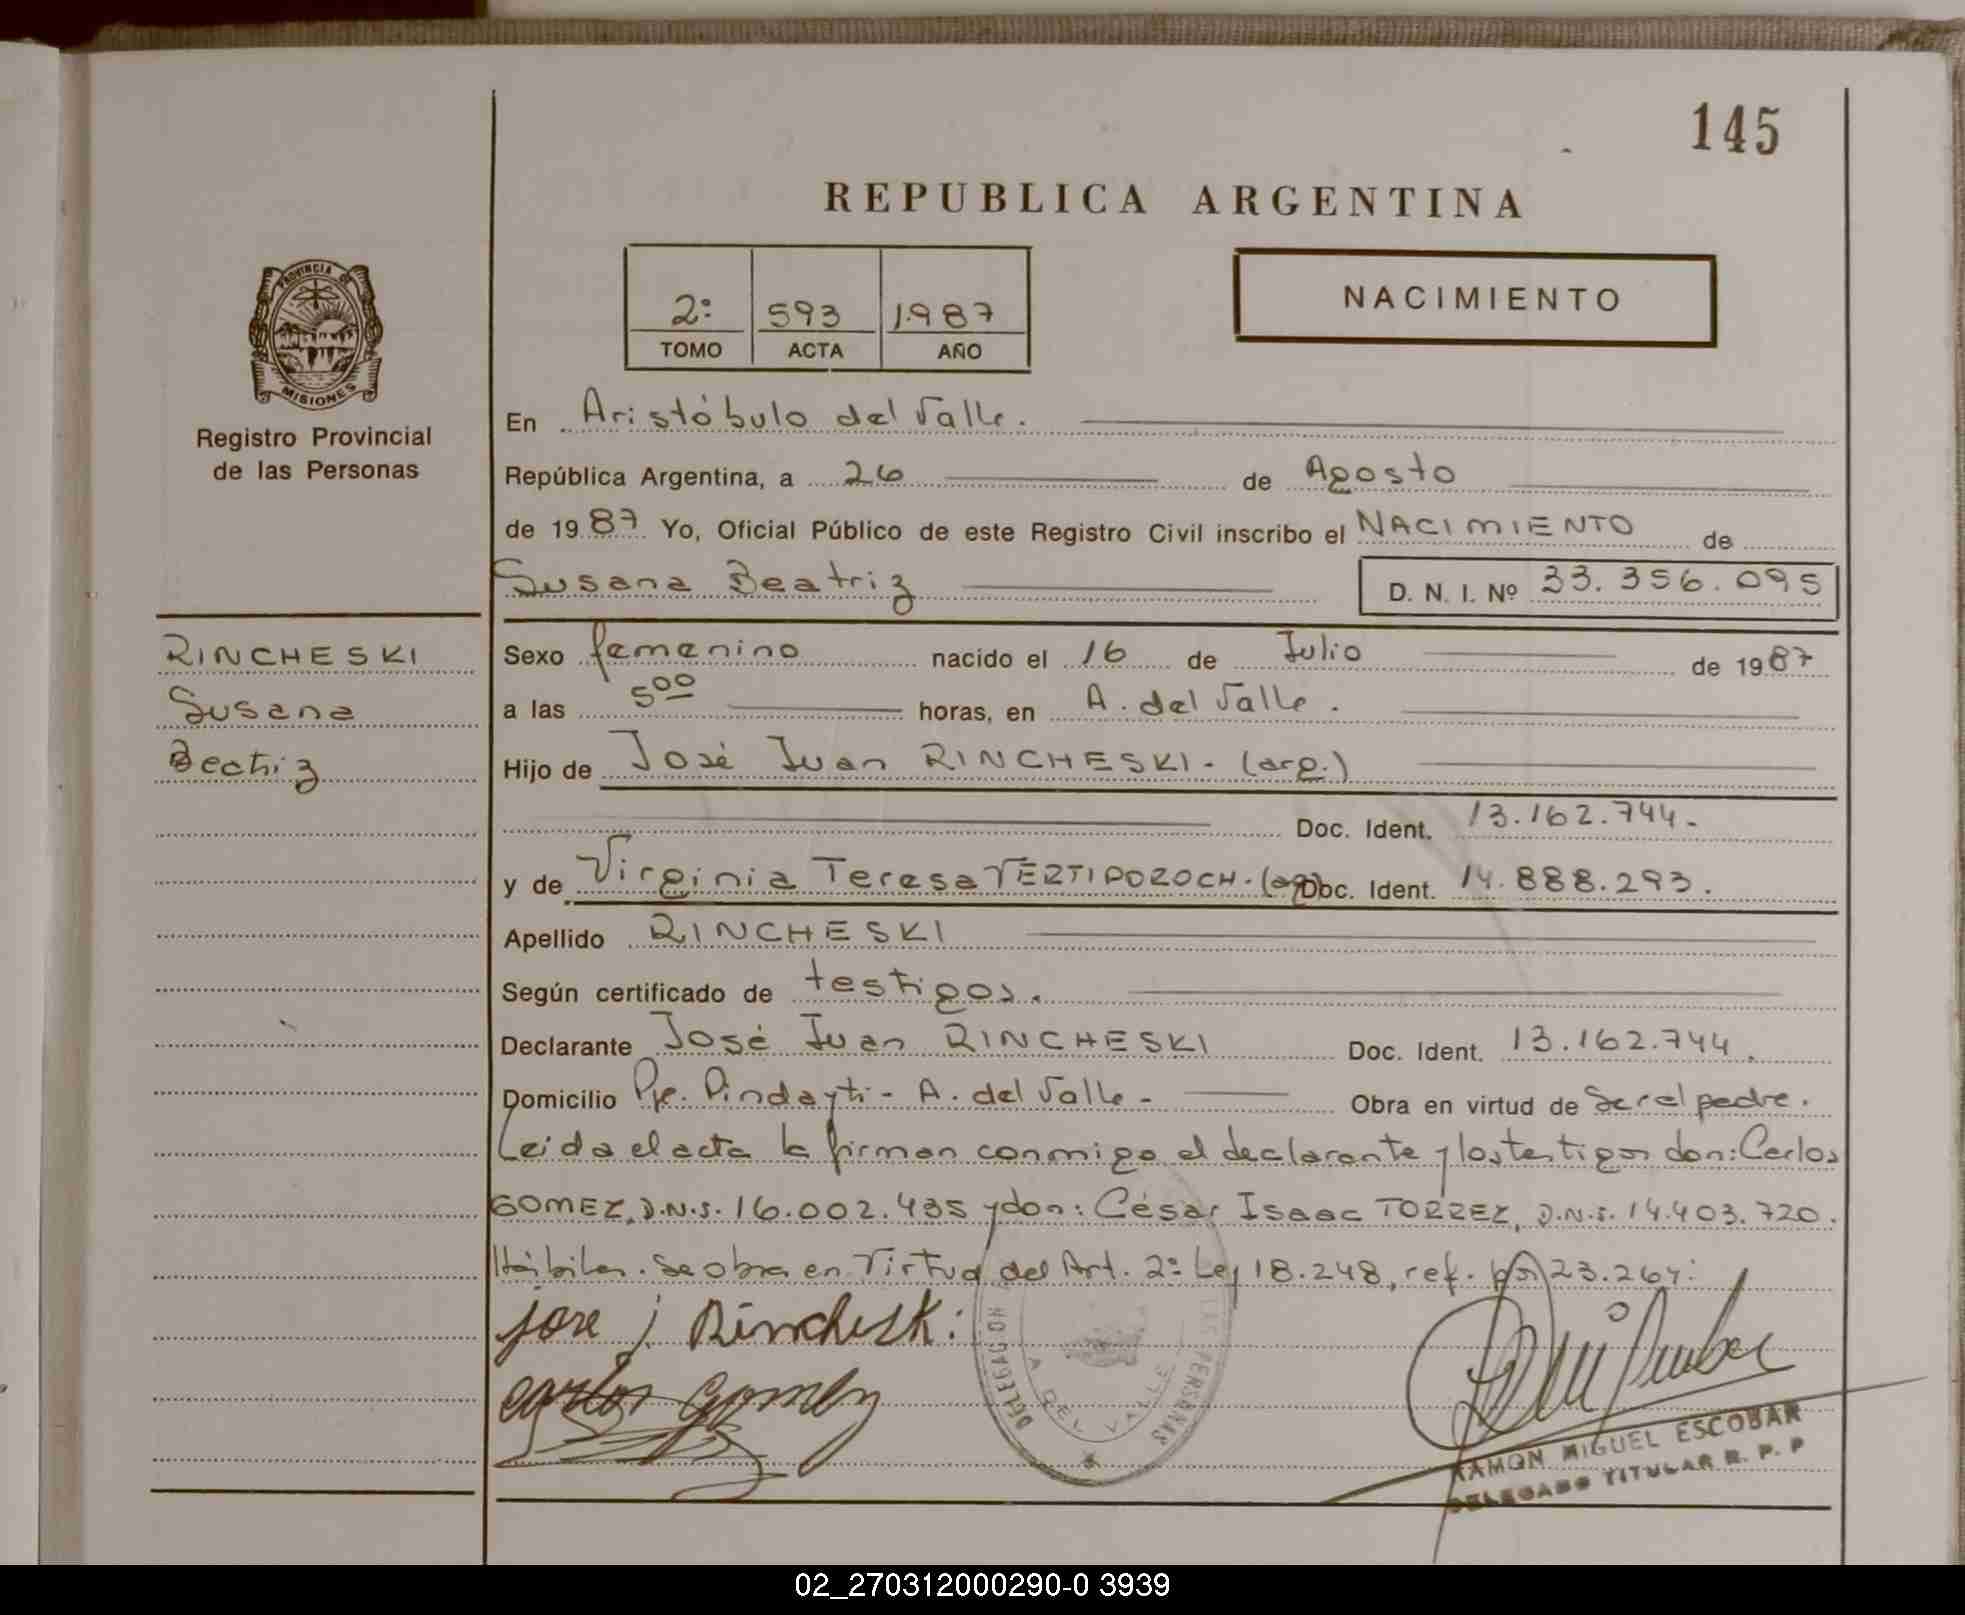 145
REPUBLICA ARGENTINA
2º 593 1.987
TOMO ACTA AÑO
NACIMIENTO
PROVINCIA DE
MISIONES
Registro Provincial
de las Personas
RINCHESKI
Susana
Beatriz
En Aristóbulo del Valle.
República Argentina, a 26 de Agosto
de 1987 Yo, Oficial Público de este Registro Civil inscribo el NACIMIENTO de
Susana Beatriz D. N. I. Nº 33.356.095
Sexo femenino nacido el 16 de Julio de 1987
a las 5 00 horas, en A. del Valle.
Hijo de José Juan RINCHESKI. (arg.)
Doc. Ident. 13.162.744.
y de Virginia Teresa VERTIPOROCH. (arg) Doc. Ident. 14.888.293.
Apellido RINCHESKI
Según certificado de testigos.
Declarante José Juan RINCHESKI Doc. Ident. 13.162.744.
Domicilio Pje. Pindayti - A. del Valle - Obra en virtud de Ser el padre.
Leida el acta la firman conmigo el declarante y los testigos don: Carlos
GOMEZ, D.N.I. 16.002.435 y don: César Isaac TORREZ, D.N.I. 14.403.720.
Hábiles. Se obra en Virtud del Art. 2º Ley 18.248, ref. por 23.264:
jose j Rincheski:
carlos Gomez
DELEGACION LAS PERSONAS
A DEL VALLE
RAMON MIGUEL ESCOBAR
DELEGADO TITULAR R. P. P
02_270312000290-0 3939